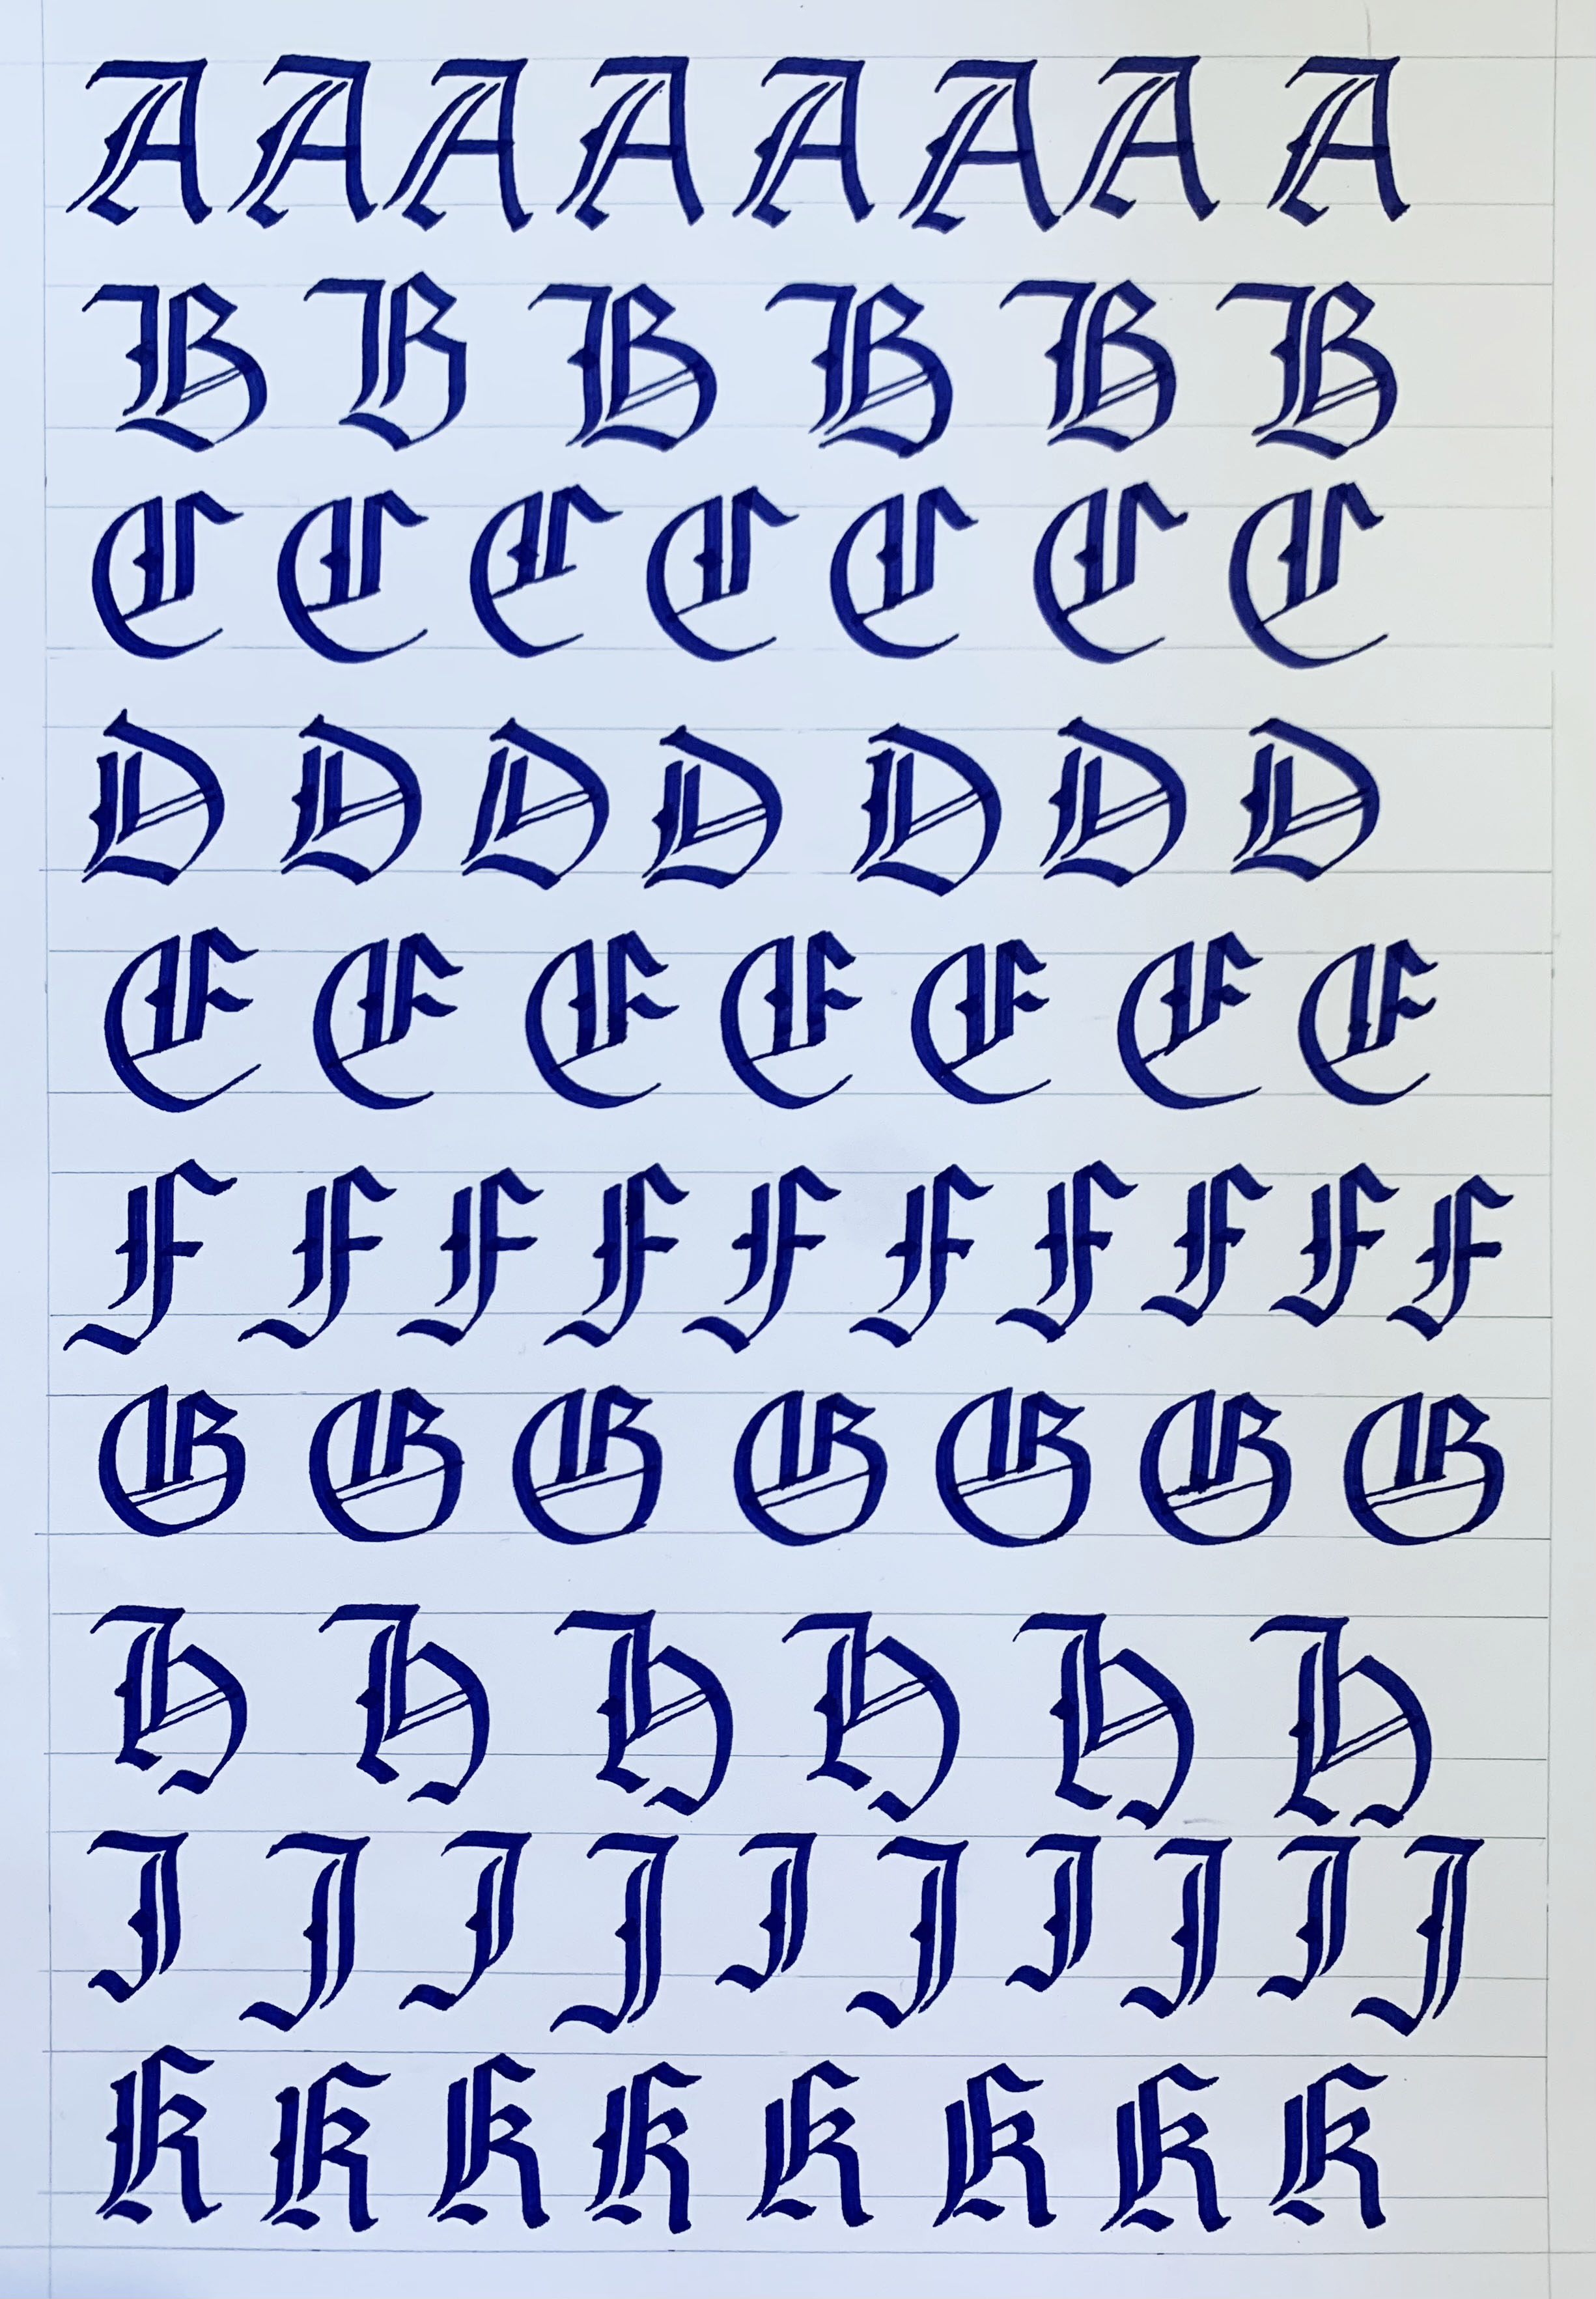 A A A A A A A A
B B B B B B
C C C C C C C
D D D D D D D
E E E E E E E
F F F F F F F F F F
G G G G G G G
H H H H H H
I J I J I J I J I J
K K K K K K K K